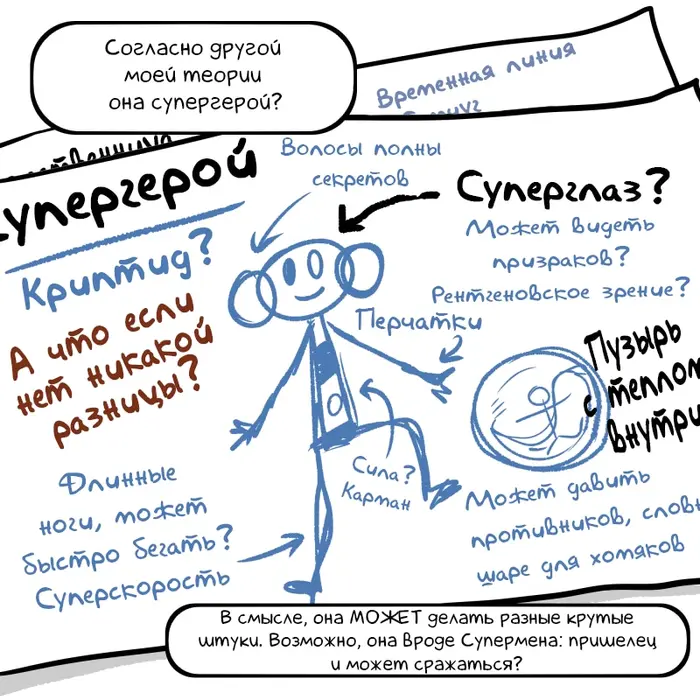 Согласно другой
моей теории
она супергерой?
Временная линия
супергерой
Криптид?
А что если
нет никакой
разницы?
Волосы полны
секретов
Суперглаз?
Может видеть
призраков?
Рентгеновское зрение?
Перчатки
Пузырь
с теплом
внутри
Сила?
Карман
Длинные
ноги, может
быстро бегать?
Суперскорость
Может давить
противников, словн
шаре для хомяков
В смысле, она МОЖЕТ делать разные крутые
штуки. Возможно, она вроде Супермена: пришелец
и может сражаться?